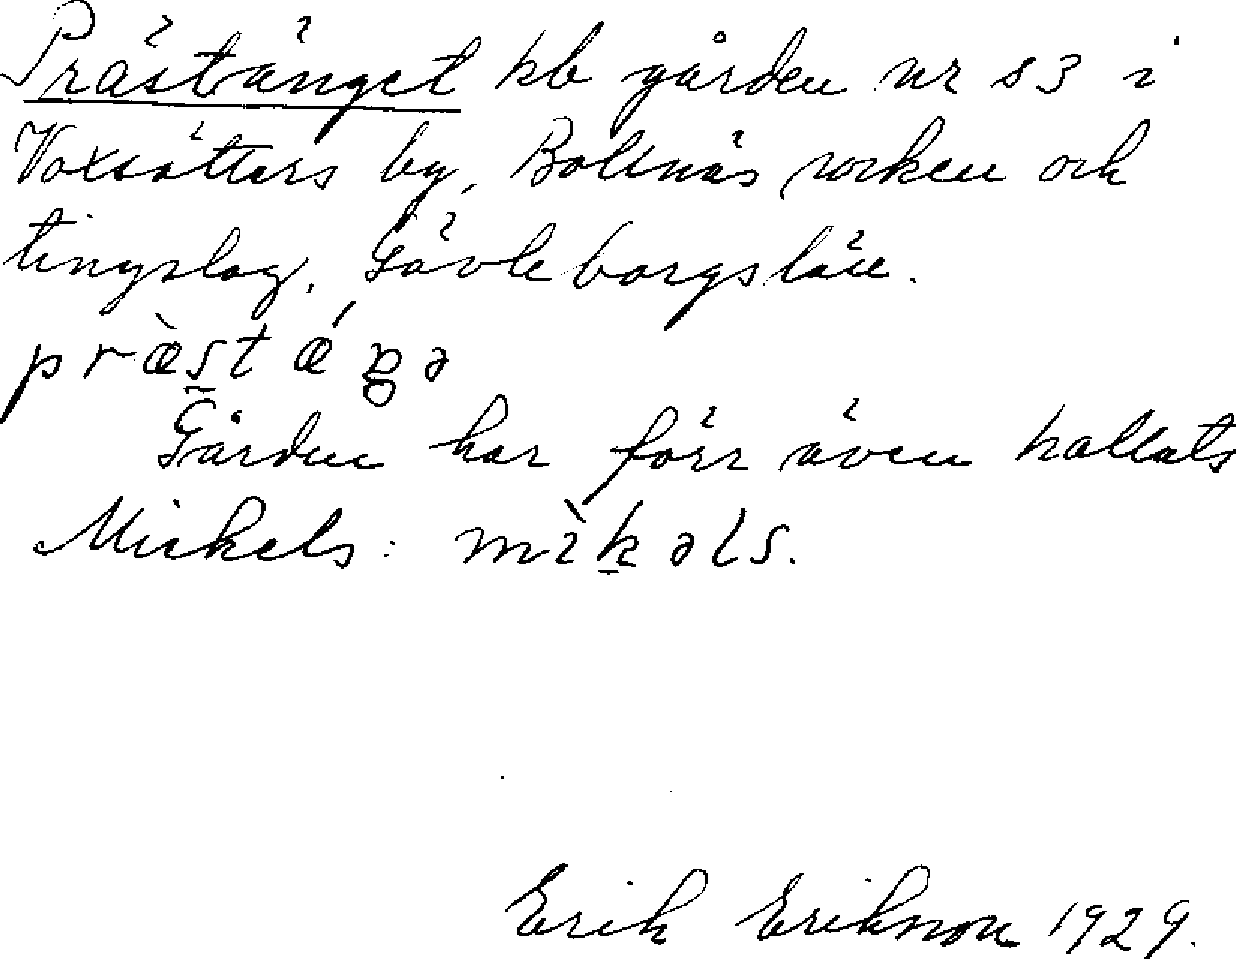 Prästänget kb gården nr s 3 i
Voxsätters by, Bollnäs socken och
tingslag, Gävleborgs län.
præ̀stǽŋə
Gården har förr även kallats
Mickels: mìkəls.
Erik Erikson 1929.